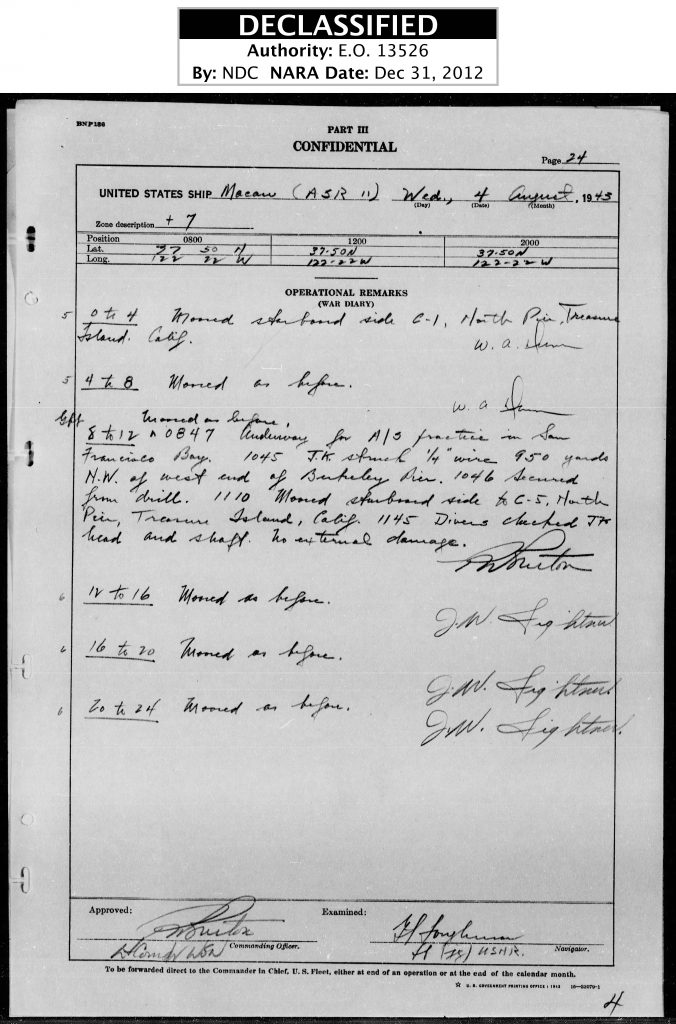 DECLASSIFIED
Authority: E.O. 13526
By: NDC NARA Date: Dec 31, 2012
BNP186
PART III
CONFIDENTIAL
Page 24
UNITED STATES SHIP Macaw (ASR 11) Wed., 4 August, 1943
(Day) (Date) (Month)
Zone description + 7
Position 0800 1200 2000
Lat. 37 50 N 37-50N 37-50N
Long. 122 22 W 122-22W 122-22W
OPERATIONAL REMARKS
(WAR DIARY)
5 0 to 4 Moored starboard side C-1, North Pier, Treasure
Island. Calif.
W. A. Dunn
5 4 to 8 Moored as before.
W. A. Dunn
Moored as before,
8 to 12 ^ 0847 Underway for A/S practice in San
Francisco Bay. 1045 J.K. struck 1/4" wire 950 yards
N.W. of west end of Berkeley Pier. 1046 Secured
from drill. 1110 Moored starboard side to C-5, North
Pier, Treasure Island, Calif. 1145 Divers checked JK
head and shaft. No external damage.
Burton
6 12 to 16 Moored as before.
J.W. Lightner
6 16 to 20 Moored as before.
J.W. Lightner
6 20 to 24 Moored as before.
J.W. Lightner
Approved: Examined:
Burton
Lt Comdr USN Commanding Officer.
Lt (jg) USNR. Navigator.
To be forwarded direct to the Commander in Chief, U. S. Fleet, either at end of an operation or at the end of the calendar month.
☆ U. S. GOVERNMENT PRINTING OFFICE : 1943 16-32679-1
4